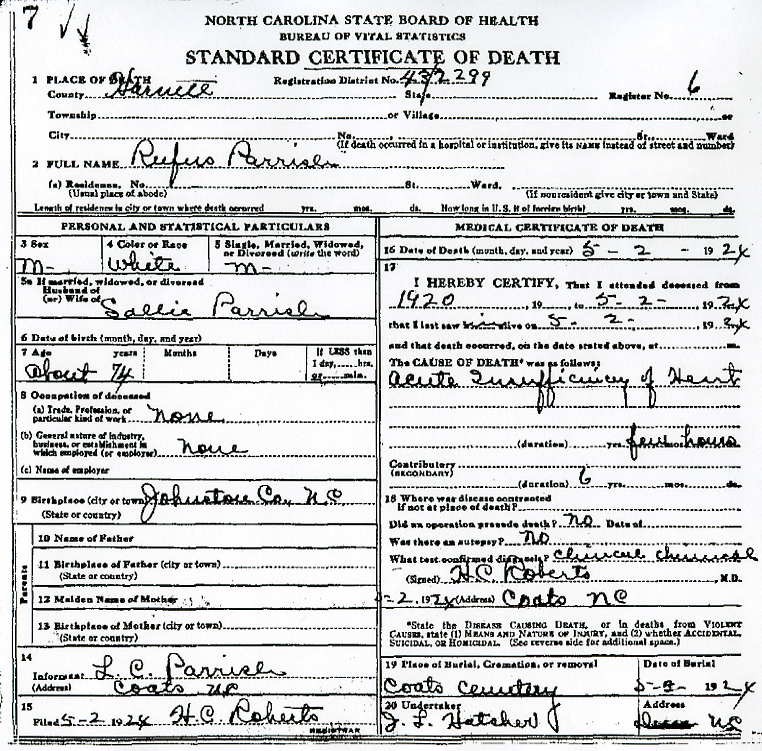 7
NORTH CAROLINA STATE BOARD OF HEALTH
BUREAU OF VITAL STATISTICS
STANDARD CERTIFICATE OF DEATH
1 PLACE OF DEATH
Registration District No. 43/2299
County Harnett State Register No. 6
Township or Village or
City No. St., Ward
(If death occurred in a hospital or institution, give its NAME instead of street and number)
2 FULL NAME Rufus Parrish
(a) Residence. No. St. Ward.
(Usual place of abode) (If nonresident give city or town and State)
Length of residence in city or town where death occurred yrs. mos. ds. How long in U. S. if of foreign birth? yrs. mos. ds.
PERSONAL AND STATISTICAL PARTICULARS
3 Sex 4 Color or Race 5 Single, Married, Widowed, or Divorced (write the word)
M- White M-
5a If married, widowed, or divorced
Husband of
(or) Wife of Sallie Parrish
6 Date of birth (month, day, and year)
7 Age years Months Days If LESS than
1 day, hrs.
About 74 or min.
8 Occupation of deceased
(a) Trade, Profession, or
particular kind of work none
(b) General nature of industry,
business, or establishment in
which employed (or employer) none
(c) Name of employer
9 Birthplace (city or town) Johnston Co, NC
(State or country)
Parents
10 Name of Father
11 Birthplace of Father (city or town)
(State or country)
12 Maiden Name of Mother
13 Birthplace of Mother (city or town)
(State or country)
14
Informant L. C. Parrish
(Address) Coats NC
15
Filed 5-2 1924 H.C. Roberts
REGISTRAR
MEDICAL CERTIFICATE OF DEATH
16 Date of Death (month, day, and year) 5-2- 1924
17
I HEREBY CERTIFY, That I attended deceased from
1920, 19 to 5-2-, 1924
that I last saw him alive on 5-2-, 1924
and that death occurred, on the date stated above, at m.
The CAUSE OF DEATH* was as follows:
Acute Insufficiency of Heart
(duration) yrs. few mos. hours
Contributory
(SECONDARY)
(duration) 6 yrs. mos. ds.
18 Where was disease contracted
if not at place of death?
Did an operation precede death? No Date of
Was there an autopsy? No
What test confirmed diagnosis? Clinical chemical
(Signed) H.C. Roberts, M.D.
5-2, 1924 (Address) Coats NC
*State the DISEASE CAUSING DEATH, or in deaths from VIOLENT
CAUSES, state (1) MEANS AND NATURE OF INJURY, and (2) whether ACCIDENTAL,
SUICIDAL, OR HOMICIDAL. (See reverse side for additional space.)
19 Place of Burial, Cremation, or removal Date of Burial
Coats Cemetery 1924
20 Undertaker Address
J. L. Hatcher NC